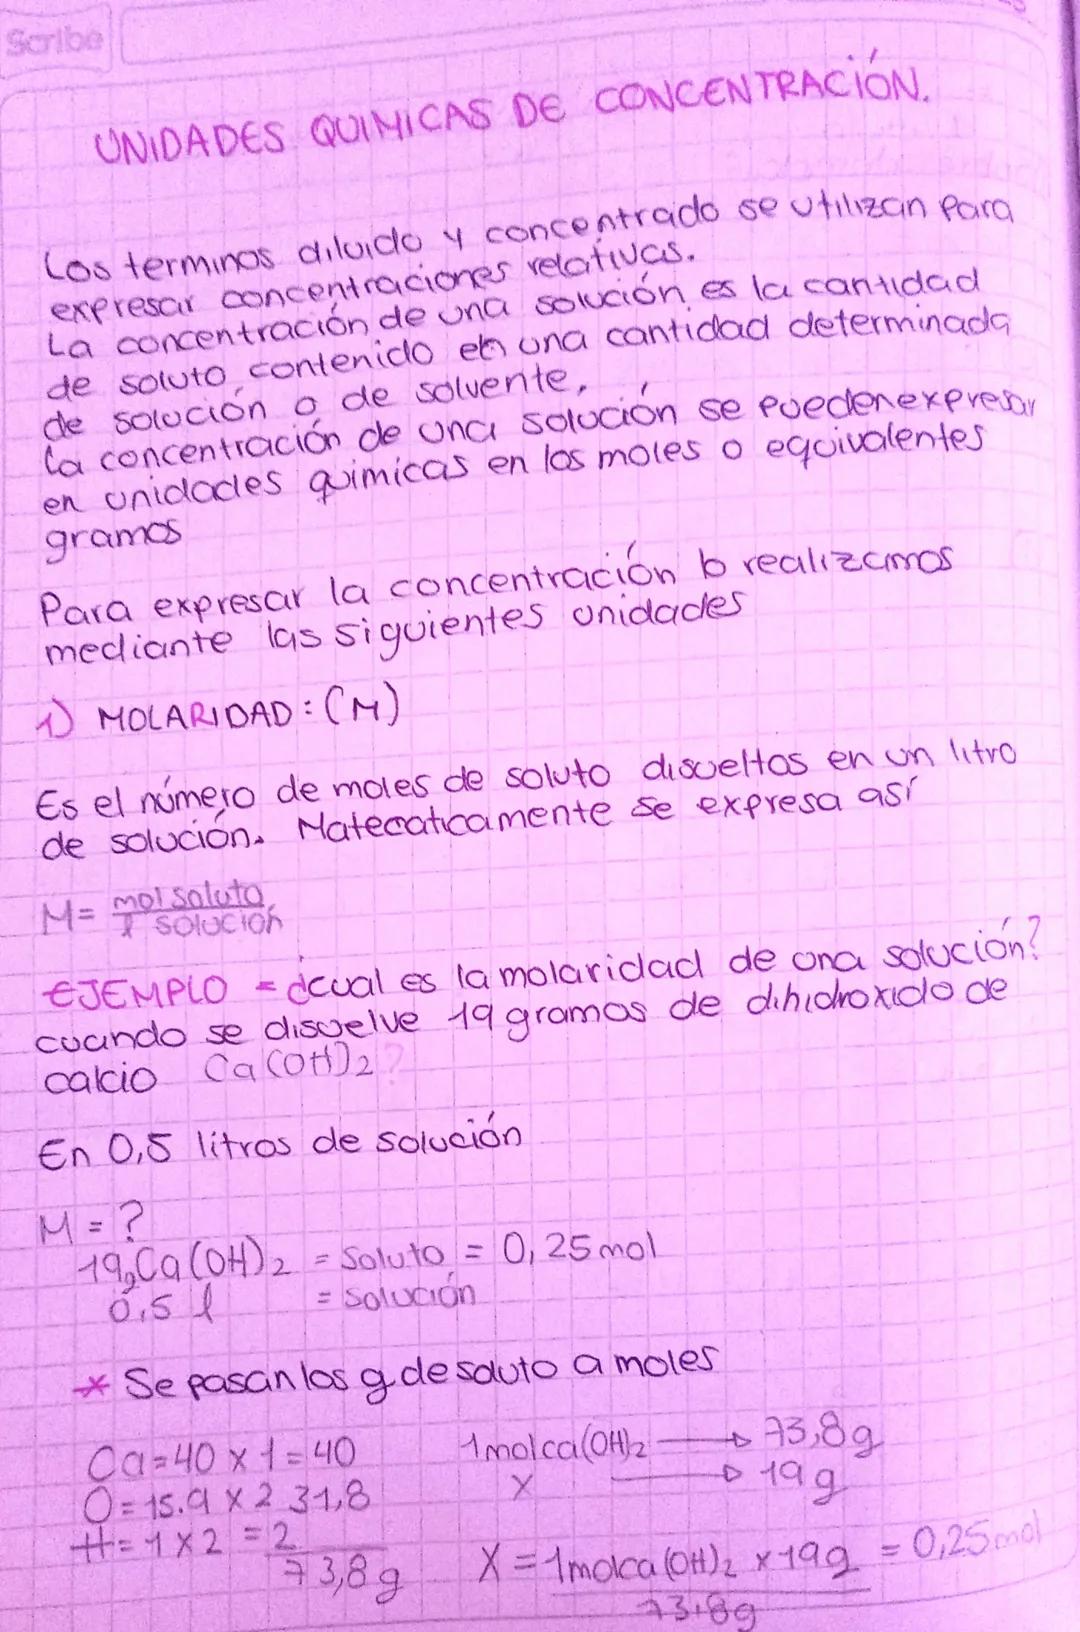 Scribe
UNIDADES QUIMICAS DE CONCENTRACIÓN.
Los terminos diluido y concentrado se utilizan para
expresar concentraciones relativas.
La concentración de una solución es la cantidad
de soluto contenido en una cantidad determinada
de solución o de solvente,
la concentración de una solución se pueden expresar
en unidades quimicas en los moles o equivalentes
gramos
Para expresar la concentración lo realizamos
mediante las siguientes unidades
1) MOLARIDAD: (M)
Es el número de moles de soluto disueltos en un litro
de solución. Matematicamente se expresa así
M= mol soluto
l solución
EJEMPLO = ¿cual es la molaridad de una solución?
cuando se disuelve 19 gramos de dihidroxido de
calcio Ca(OH)2?
En 0,5 litros de solución
M = ?
19g Ca(OH)2 = Soluto = 0,25 mol
0,5 l = solución
* Se pasan los g de soluto a moles
Ca=40 x 1 = 40 1 mol ca(OH)2 → 73,8 g
O=15.9 x 2 31,8 X → 19 g
H=1 x 2 = 2
73,8 g X = 1 mol ca(OH)2 x 19 g = 0,25 mol
73,8g